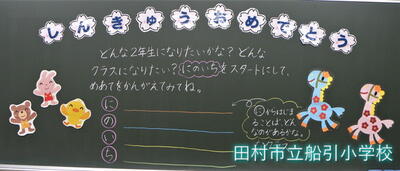 しんきゅうおめでとう
どんな2年生になりたいかな？どんな
クラスになりたい？にのいちをスタートにして、
めあてをかんがえてみてね。
に
の
い
ち
にからはじま
ることば、どん
なのがあるかな。
田村市立船引小学校